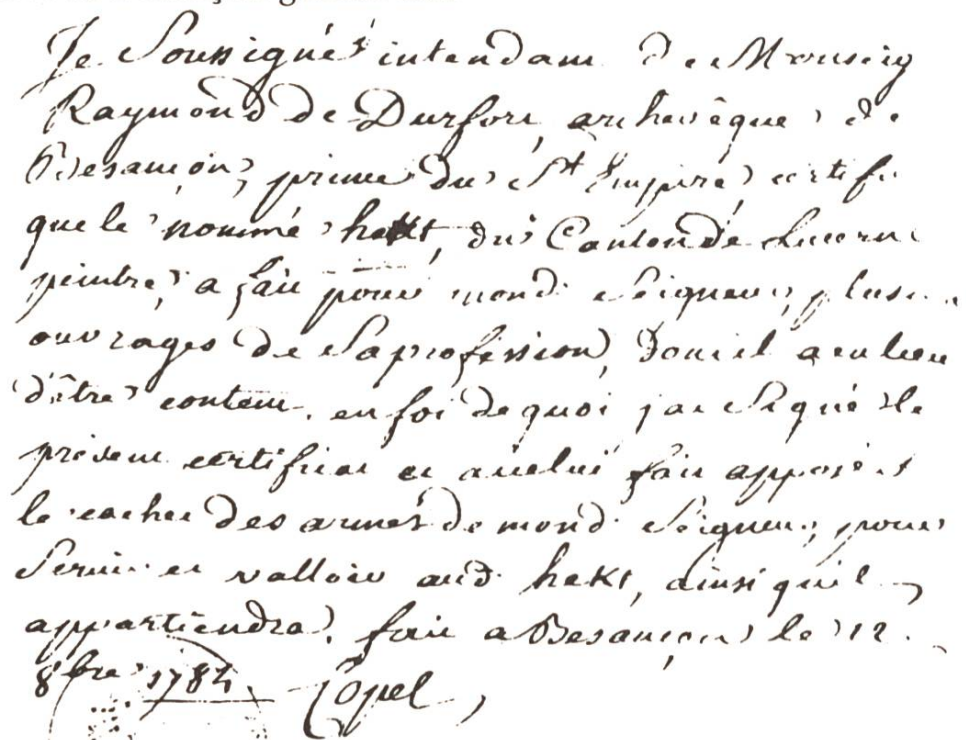 Je Soussigné intendant de Monseig
Raymond de Durfort, archevêque de
Besançon, prince du St Empire, certifie
que le nommé hekt, du Canton de Lucerne
peintre, a fait pour mond. Seigneur, plusieurs
ouvrages de Sa profession, Dont il a eu lieu
d'être content. en foi de quoi j'ai Signé le
présent certificat et à icelui fait apposer
le cachet des armes de mond. Seigneur, pour
Servir et valloir aud. hekt, ainsi qu'il
appartiendra. fait a Besançon le 12.
8bre 1784. Copel,